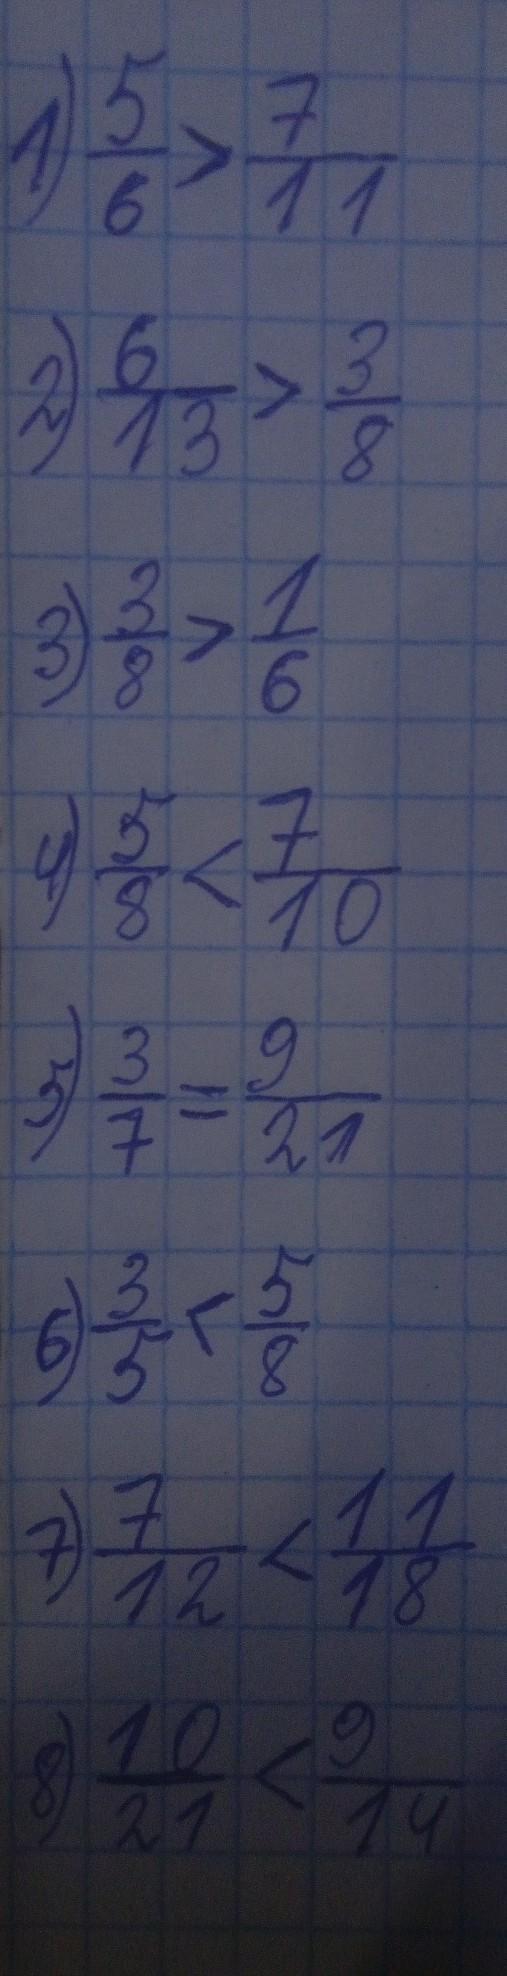 1) 5/6 > 7/11
2) 6/13 > 3/8
3) 3/8 > 1/6
4) 5/8 < 7/10
5) 3/7 = 9/21
6) 3/5 < 5/8
7) 7/12 < 11/18
8) 10/21 < 9/14